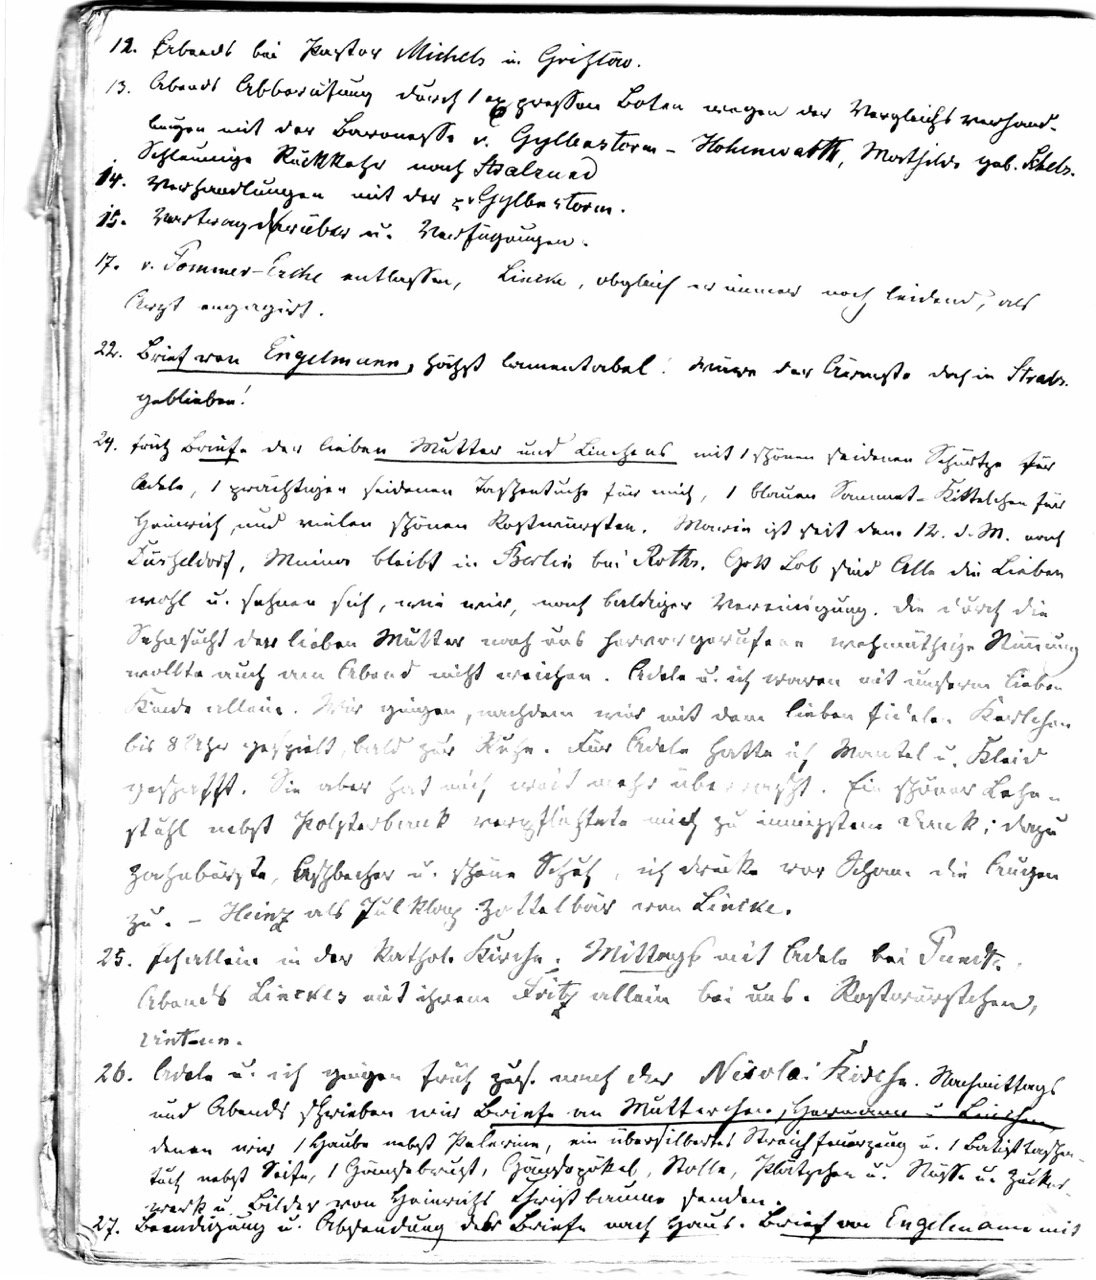 12. Abends bei Pastor Michels in Gristow.
13. Abends Abberufung durch 1 expressen Boten wegen der Vergleichsverhand-
lungen mit der Baronesse v. Gyllenstorm - Hohenwarth, Mathilde geb. Schels.
Schleunige Rückkehr nach Stralsund
14. Verhandlungen mit der v. Gyllenstorm.
15. Vortrag darüber u. Verfügungen.
17. v. Pommer-Esche entlassen, Lincke, obgleich er immer noch leidend, als
Arzt engagirt.
22. Brief von Engelmann, höchst lamentabel! wäre der Ärmste doch in Strals.
geblieben!
24. früh Briefe der lieben Mutter und Linchens mit 1 schönen seidenen Schürtze für
Adele, 1 prächtigen seidenen Taschentuche für mich, 1 blauen Sammet-Kittelchen für
Heinrich, und vielen schönen Rostwürsten. Marie ist seit dem 12. d. M. nach
Düsseldorf, Minna bleibt in Berlin bei Roths. Gott Lob sind Alle die Lieben
wohl u. sehnen sich, wie wir, nach baldiger Vereinigung. Die durch die
Sehnsucht der lieben Mutter nach uns hervorgerufene wehmüthige Stimmung
wollte auch am Abend nicht weichen. Adele u. ich waren mit unserm lieben
Kinde allein. Wir gingen, nachdem wir mit dem lieben fidelen Kerlchen
bis 8 Uhr gespielt, bald zur Ruhe. Für Adele hatte ich Mantel u. Kleid
geschafft. Sie aber hat mich weit mehr überrascht. Ein schöner Lehn-
stuhl nebst Polsterbank verpflichtete mich zu innigstem Dank; dazu
Zahnbürste, Aschbecher u. schöne Schuh, ich drücke vor Scham die Augen
zu. - Heinz als Julklap Zottelbär von Lincke.
25. Ich allein in der kathol. Kirche. Mittags mit Adele bei
Abends Linckes mit ihrem Fritz allein bei uns. Rostwürstchen,
26. Adele u. ich gingen früh zus. nach der Nicolai Kirche. Nachmittags
und Abends schrieben wir Briefe an Mutterchen, Hermann u Linchen
denen wir 1 Haube nebst Pelerine, ein übersilbertes Streichfeuerzeug u. 1 Batisttaschen-
tuch nebst Seife, 1 Gänsebrust, Gänsepökel, Stolle, Plätzchen u. Nüsse u. Zucker-
werk u. Bilder von Heinrichs Christbaume senden.
27. Beendigung u. Absendung der Briefe nach Haus. Brief von Engelmann mit